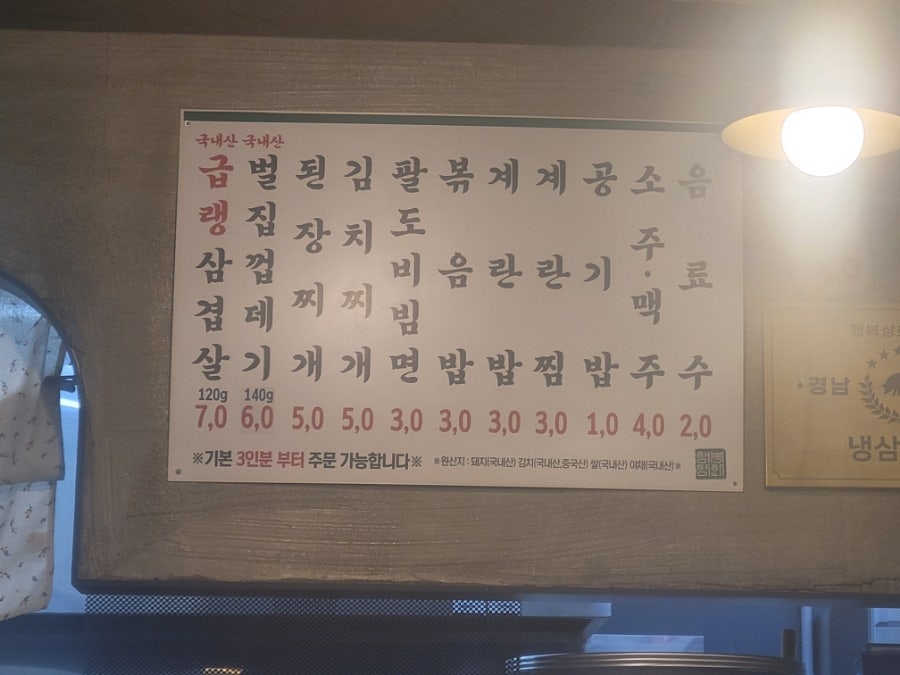 국내산
급랭삼겹살
120g
7,0
국내산
벌집껍데기
140g
6,0
된장찌개
5,0
김치찌개
5,0
팔도비빔면
3,0
볶음밥
3,0
계란밥
3,0
계란찜
3,0
공기밥
1,0
소주·맥주
4,0
음료수
2,0
※기본 3인분 부터 주문 가능합니다※
※원산지 : 돼지(국내산) 김치(국내산,중국산) 쌀(국내산) 야채(국내산)※
경남
냉삼